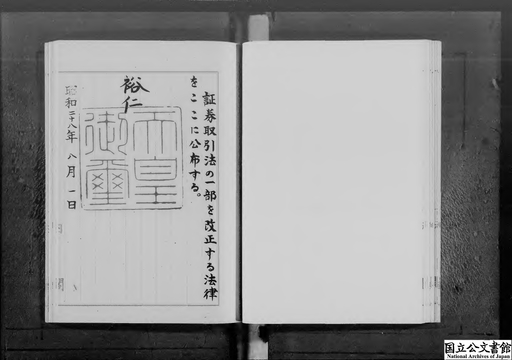 証券取引法の一部を改正する法律
をここに公布する。
裕仁
天皇
御璽
昭和二十八年八月一日
国立公文書館
National Archives of Japan